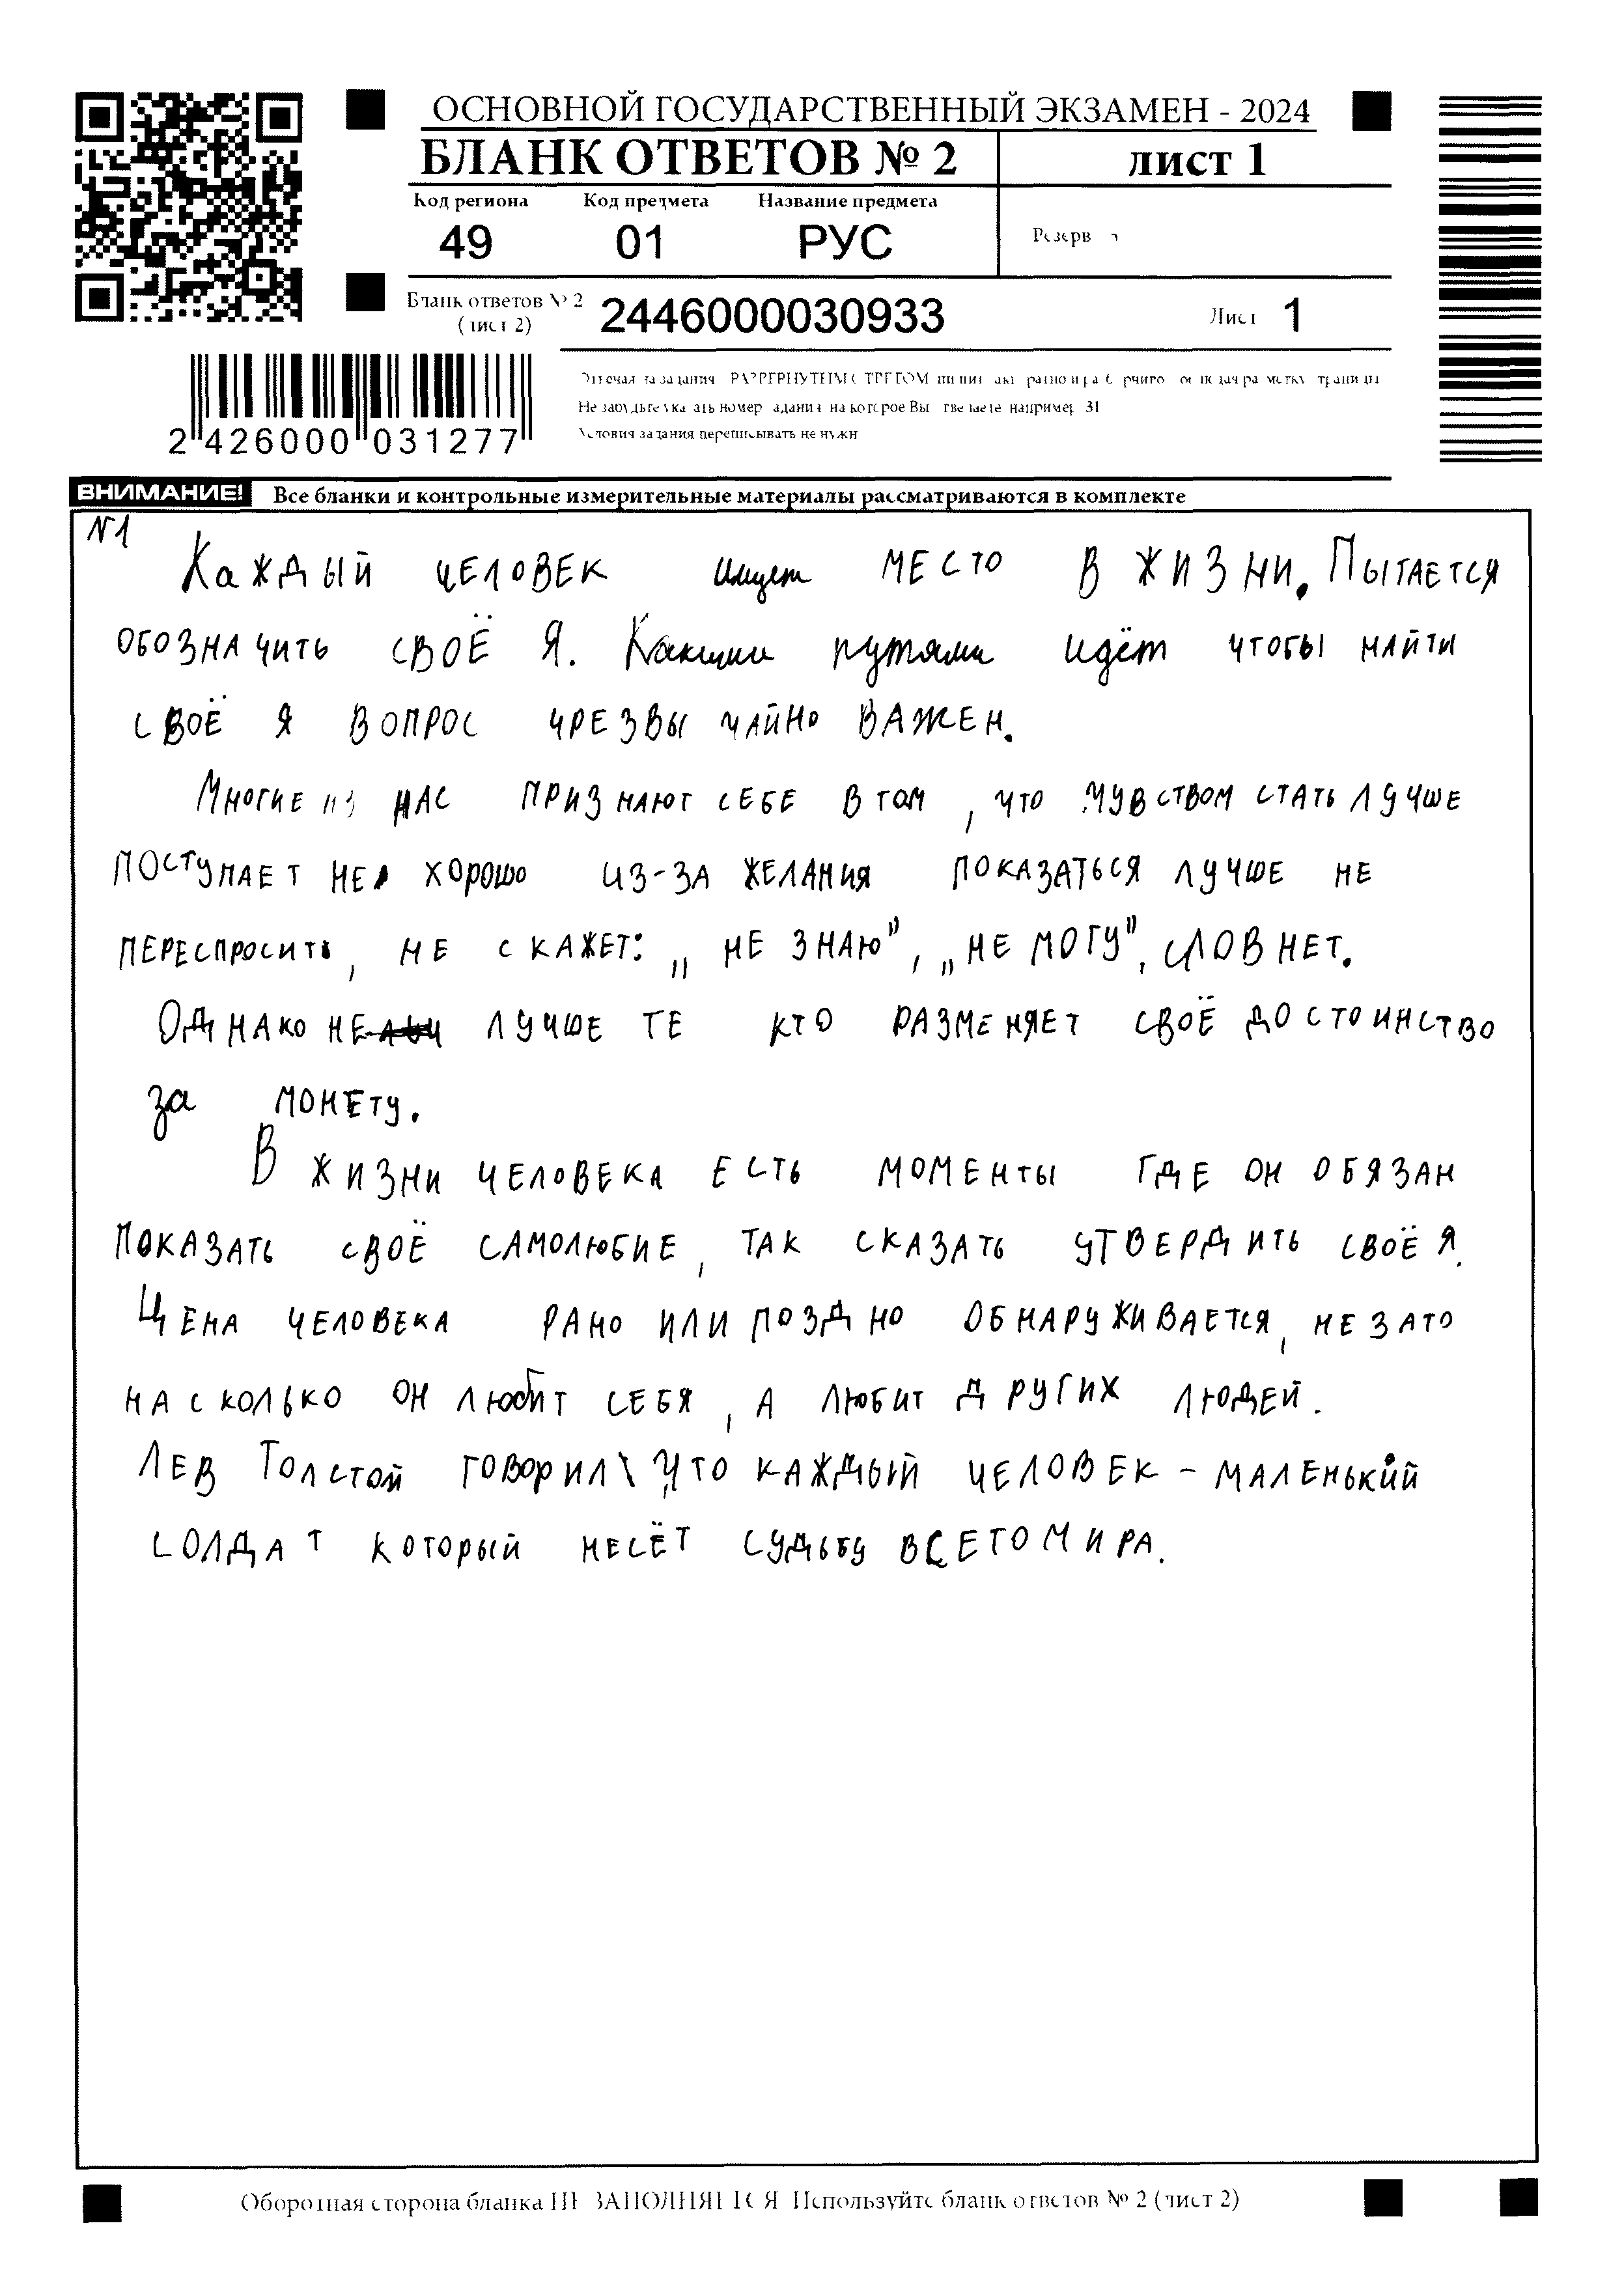 ОСНОВНОЙ ГОСУДАРСТВЕННЫЙ ЭКЗАМЕН - 2024
БЛАНК ОТВЕТОВ № 2
лист 1
Код региона Код предмета Название предмета
49 01 РУС
Резерв
Бланк ответов № 2
(лист 2)
2446000030933
Лист 1
2 426000 031277
Не забудьте указать номер задания на которое Вы отвечаете например 31
Условия задания переписывать не нужно
ВНИМАНИЕ! Все бланки и контрольные измерительные материалы рассматриваются в комплекте
N1
Каждый человек ищет место в жизни. Пытается
обозначить своё Я. Какими путями идёт чтобы найти
своё я вопрос чрезвычайно важен.
Многие из нас признают себе в том, что чувством стать лучше
поступает не хорошо из-за желания показаться лучше не
переспросить, не скажет: „не знаю", „не могу", слов нет.
Однако не лучше те кто разменяет своё достоинство
за монету.
В жизни человека есть моменты где он обязан
показать своё самолюбие, так сказать утвердить своё я.
Цена человека рано или поздно обнаруживается, не зато
насколько он любит себя, а любит других людей.
Лев Толстой говорил, что каждый человек - маленький
солдат который несёт судьбу всего мира.
Оборотная сторона бланка НЕ ЗАПОЛНЯЕТСЯ Используйте бланк ответов № 2 (лист 2)